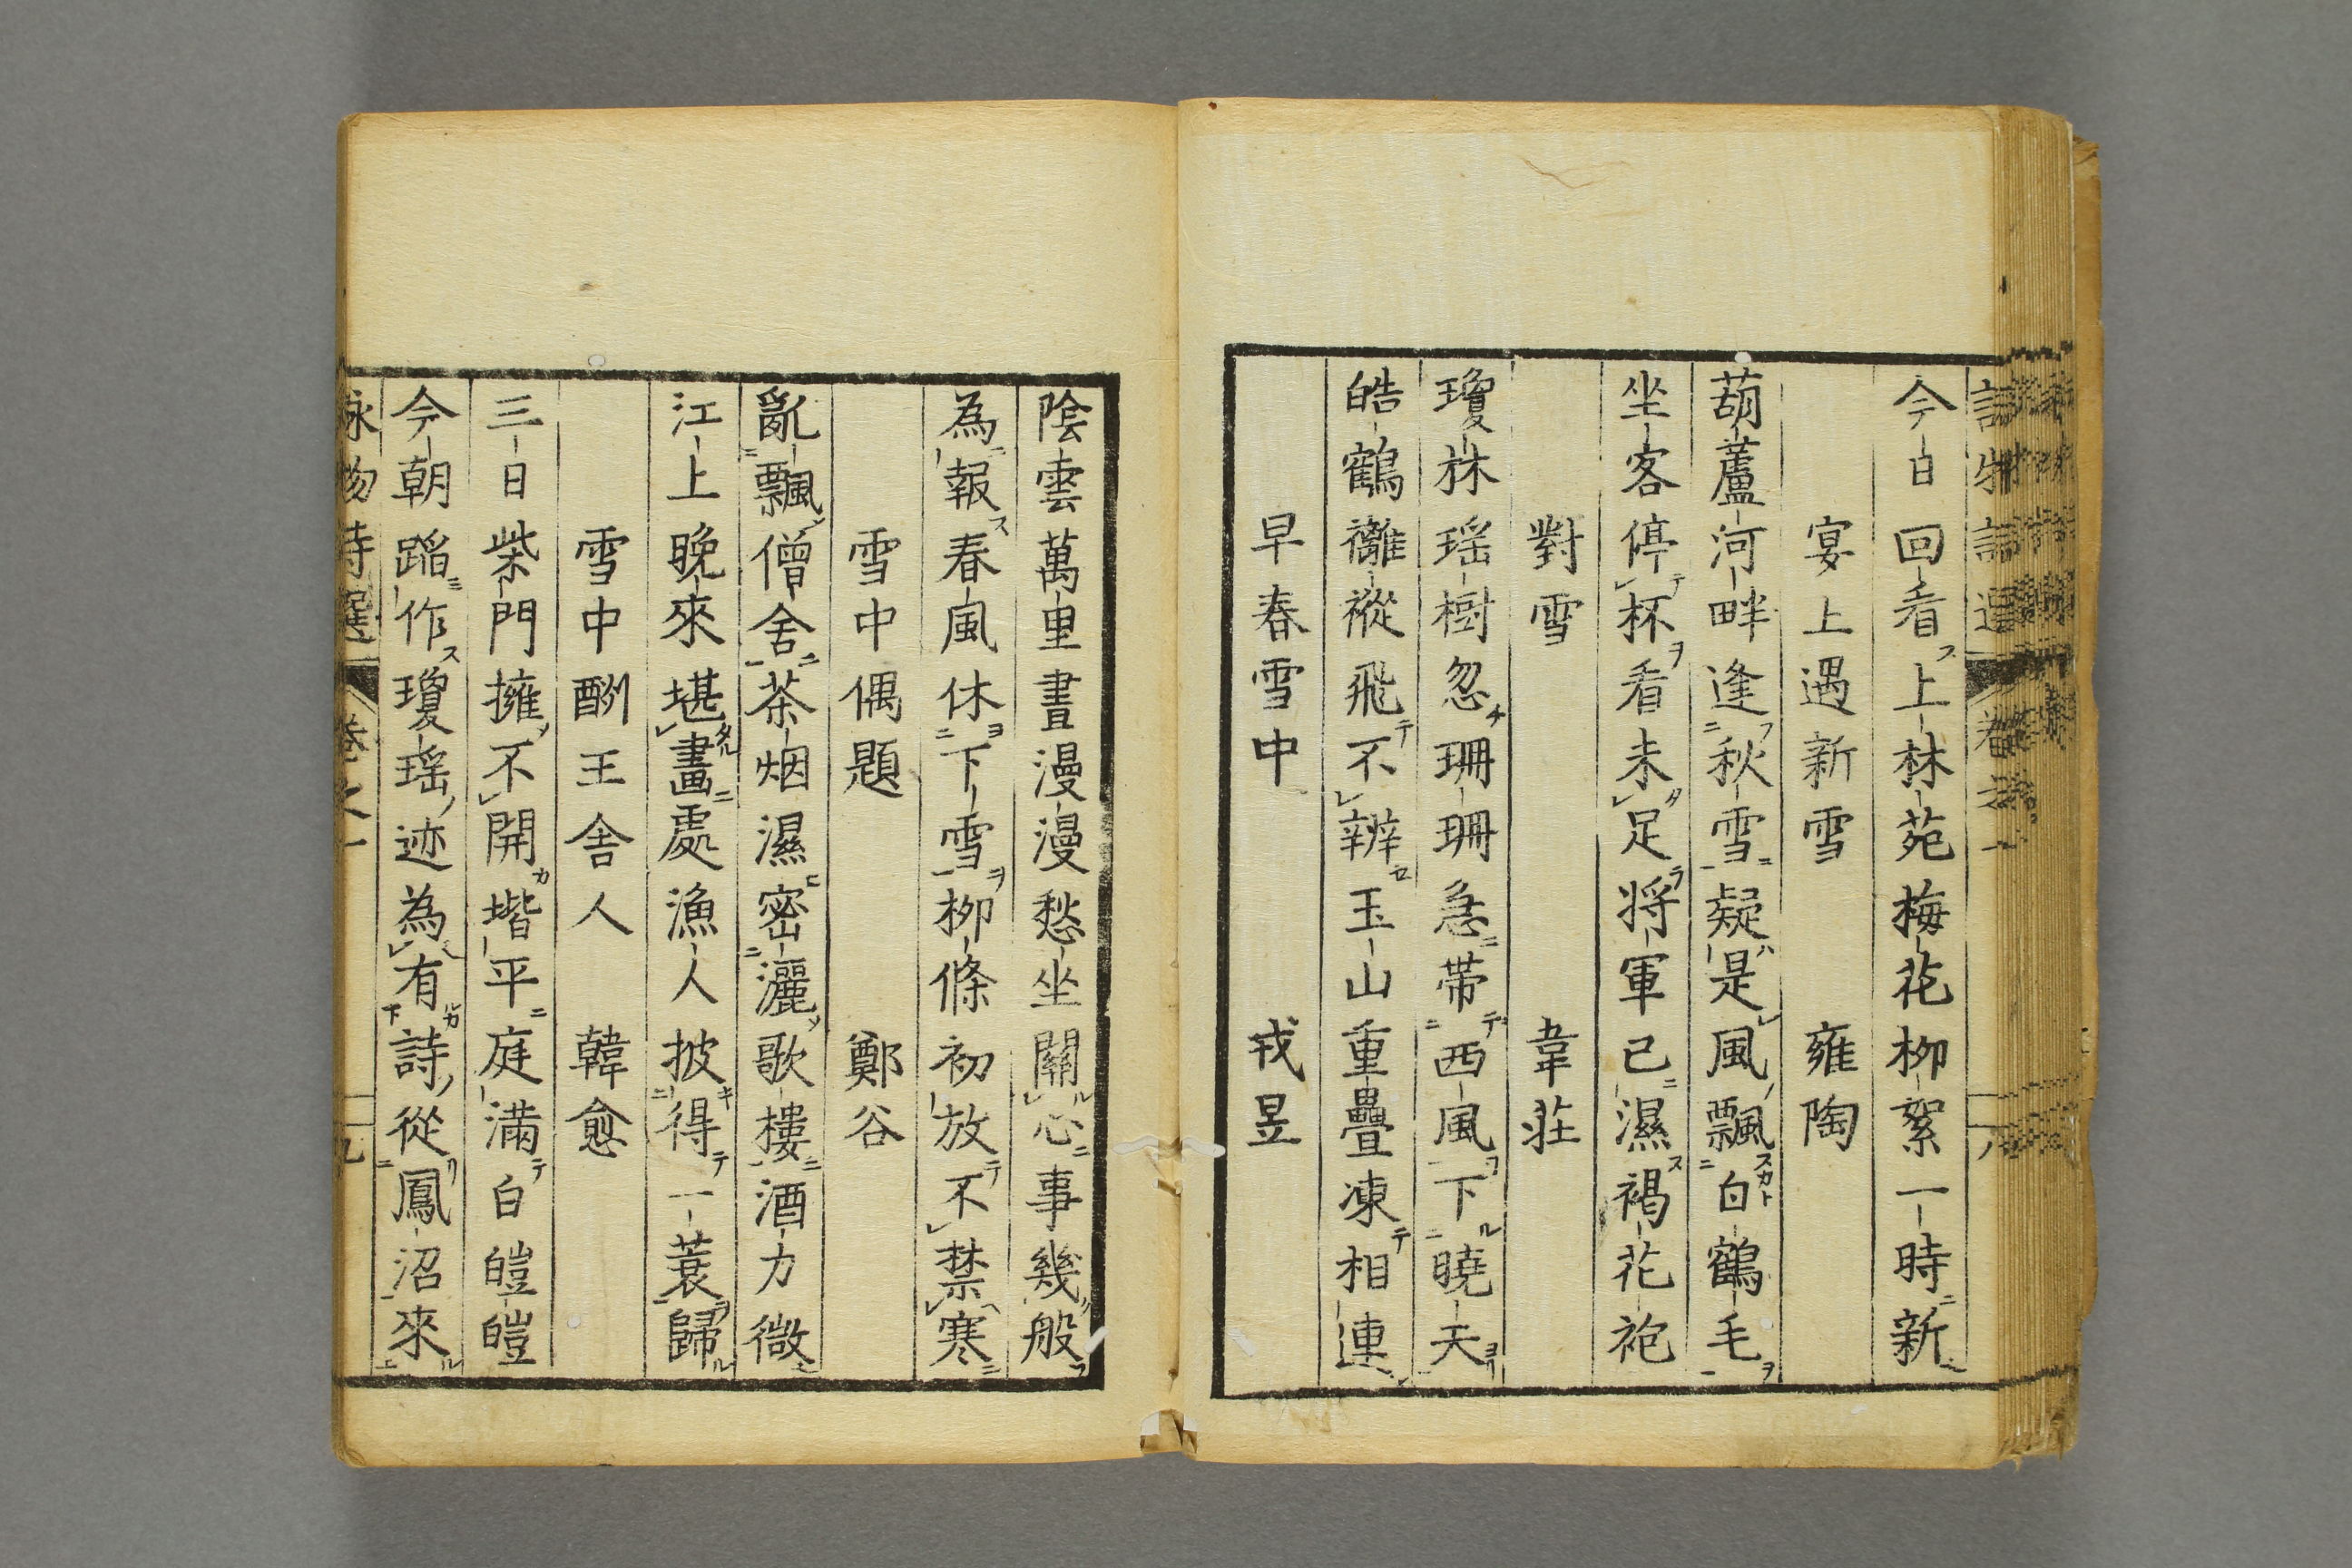 今日回看上林苑梅花柳絮一時新
宴上遇新雪 雍陶
葫蘆河畔逢秋雪疑是風飄白鶴毛
坐客停杯看未足将軍已濕褐花袍
對雪 韋莊
瓊林瑶樹忽珊珊急帯西風下曉天
皓鶴褵褷飛不辨玉山重疊凍相連
早春雪中 戎昱
陰雲萬里晝漫漫愁坐關心事幾般
為報春風休下雪柳條初放不禁寒
雪中偶題 鄭谷
亂飄僧舎茶烟濕密灑歌樓酒力微
江上晩來堪畫處漁人披得一蓑歸
雪中酬王舎人 韓愈
三日柴門擁不開堦平庭満白皚皚
今朝蹈作瓊瑶迹為有詩從鳳沼來
詠物詩選 卷之一 九